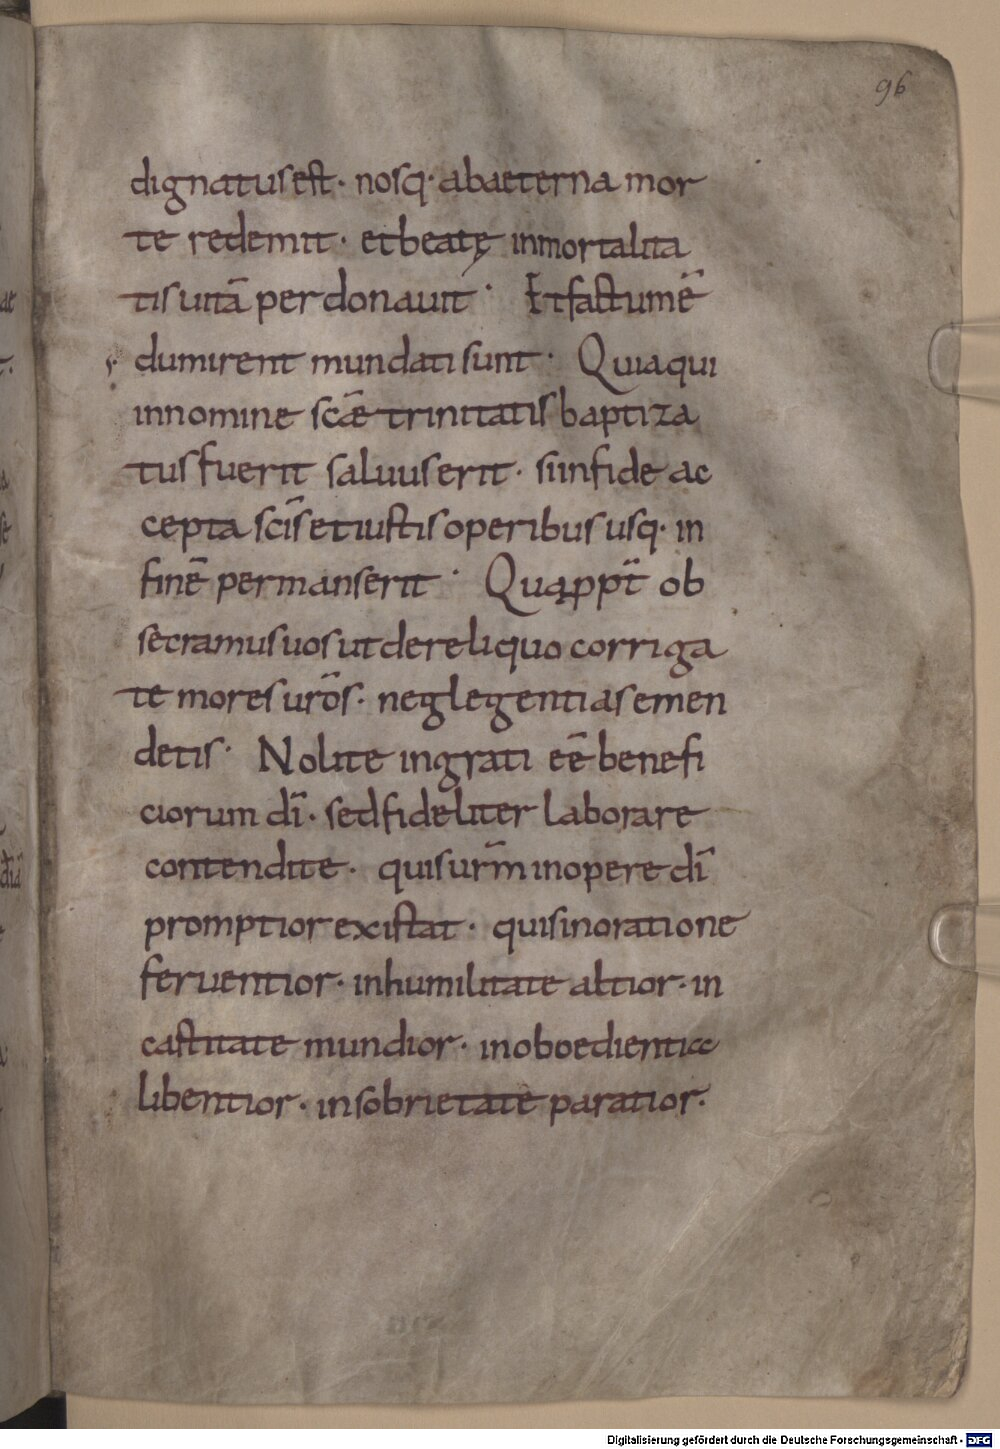 96
dignatus est · nosq· ab aeterna mor
te redemit · et beatę inmortalita
tis uitā perdonauit · Et factum ē
dum irent mundati sunt · Quia qui
in nomine scǣ trinitatis baptiza
tus fuerit saluus erit · si in fide ac
cepta scīs et iustis operibus usq· in
finē permanserit · Quąppt̄ ob
secramus uos ut de reliquo corriga
te mores urōs · neglegentias emen
detis · Nolite ingrati eē benefi
ciorum dī · sed fideliter laborare
contendite · quis urm̄ in opere dī
promptior existat · quis in oratione
feruentior · in humilitate altior · in
castitate mundior · in oboedientia
libentior · in sobrietate paratior ·
Digitalisierung gefördert durch die Deutsche Forschungsgemeinschaft - DFG